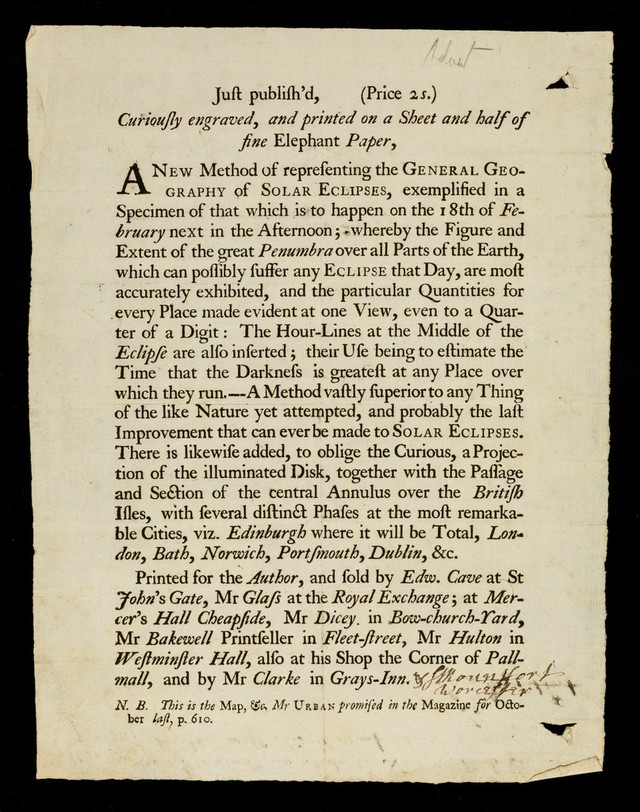 Advert
Juſt publiſh'd, (Price 2s.)
Curiouſly engraved, and printed on a Sheet and half of
fine Elephant Paper,
A NEW Method of repreſenting the GENERAL GEO-
GRAPHY of SOLAR ECLIPSES, exemplified in a
Specimen of that which is to happen on the 18th of Fe-
bruary next in the Afternoon; whereby the Figure and
Extent of the great Penumbra over all Parts of the Earth,
which can poſſibly ſuffer any ECLIPSE that Day, are moſt
accurately exhibited, and the particular Quantities for
every Place made evident at one View, even to a Quar-
ter of a Digit: The Hour-Lines at the Middle of the
Eclipſe are alſo inſerted; their Uſe being to eſtimate the
Time that the Darkneſs is greateſt at any Place over
which they run.—A Method vaſtly ſuperior to any Thing
of the like Nature yet attempted, and probably the laſt
Improvement that can ever be made to SOLAR ECLIPSES.
There is likewiſe added, to oblige the Curious, a Projec-
tion of the illuminated Disk, together with the Paſſage
and Section of the central Annulus over the Britiſh
Iſles, with ſeveral diſtinct Phaſes at the moſt remarka-
ble Cities, viz. Edinburgh where it will be Total, Lon-
don, Bath, Norwich, Portſmouth, Dublin, &c.
Printed for the Author, and ſold by Edw. Cave at St
John's Gate, Mr Glaſs at the Royal Exchange; at Mer-
cer's Hall Cheapſide, Mr Dicey in Bow-church-Yard,
Mr Bakewell Printſeller in Fleet-ſtreet, Mr Hulton in
Weſtminſter Hall, alſo at his Shop the Corner of Pall-
mall, and by Mr Clarke in Grays-Inn. & S Mountfort
Worceſter
N. B. This is the Map, &c. Mr URBAN promiſed in the Magazine for Octo-
ber laſt, p. 610.